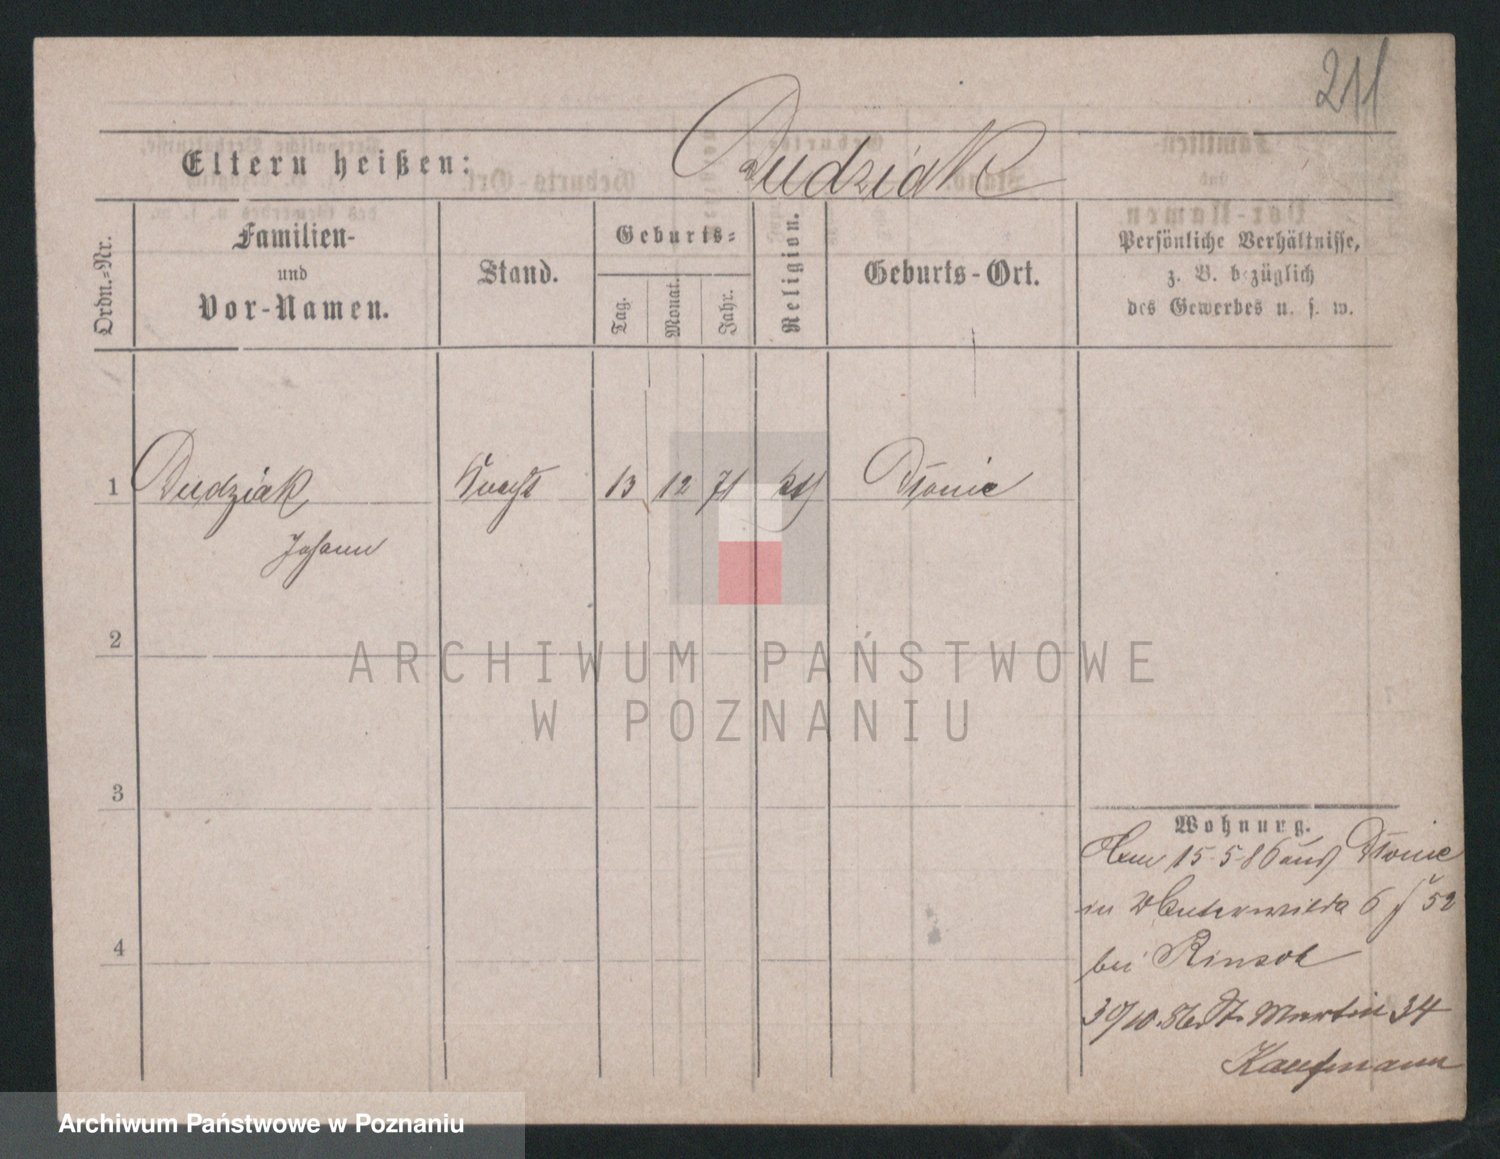 211
Eltern heißen:
Dudziak
Ordn.-Nr.
Familien-
und
Vor-Namen.
Stand.
Geburts-
Tag.
Monat.
Jahr.
Religion.
Geburts-Ort.
Persönliche Verhältnisse,
z. B. bezüglich
des Gewerbes u. s. w.
1 Dudziak Knecht 13 12 71 Dłonie
Johann
2
ARCHIWUM PAŃSTWOWE
W POZNANIU
3
Wohnung.
15-5-86 aus Dłonie
in Unterwilda 6 52
bei
30/10. 86. St. Martin 34
Kaufmann
4
Archiwum Państwowe w Poznaniu